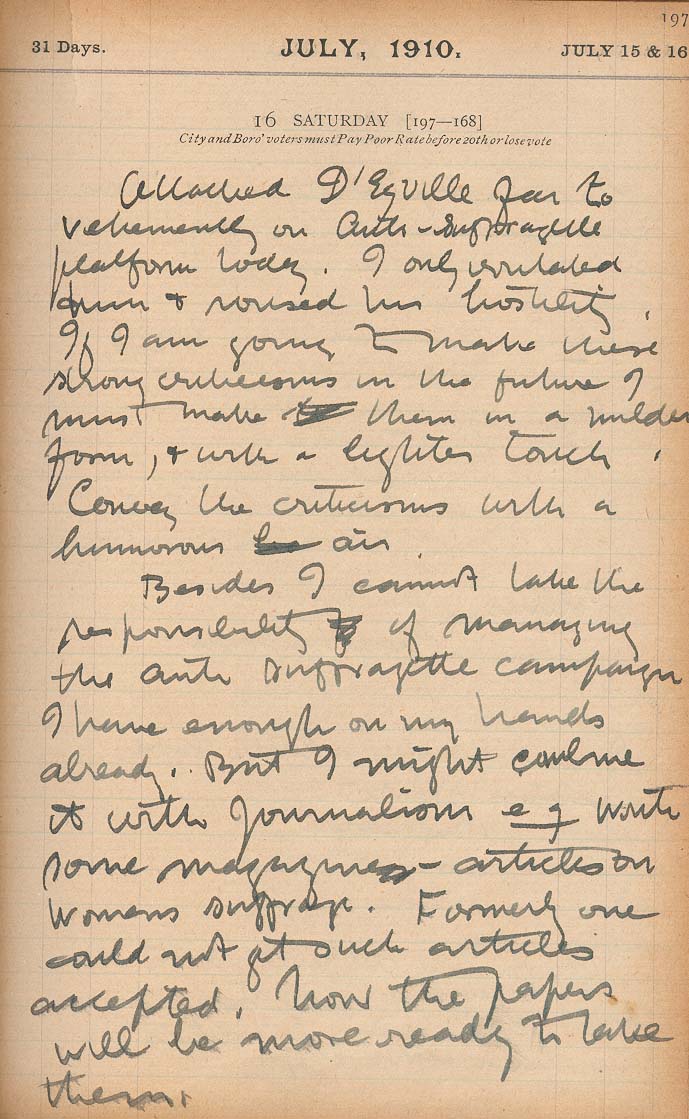 197
31 Days.
JULY, 1910.
JULY 15 & 16
16 SATURDAY [197—168]
City and Boro' voters must Pay Poor Rate before 20th or lose vote
Attacked D'Egville far to
vehemently on Anti-Suffragette
platform today. I only irritated
him & roused his hostility.
If I am going to make these
strong criticisms in the future I
must make them in a milder
form, & with a lighter touch.
Convey the criticisms with a
humorous air.
Besides I cannot take the
responsibility of managing
the anti suffragette campaign
I have enough on my hands
already. But I might combine
it with journalism e g write
some magazine - articles on
Womans suffrage. Formerly one
could not get such articles
accepted. Now the papers
will be more ready to take
them.